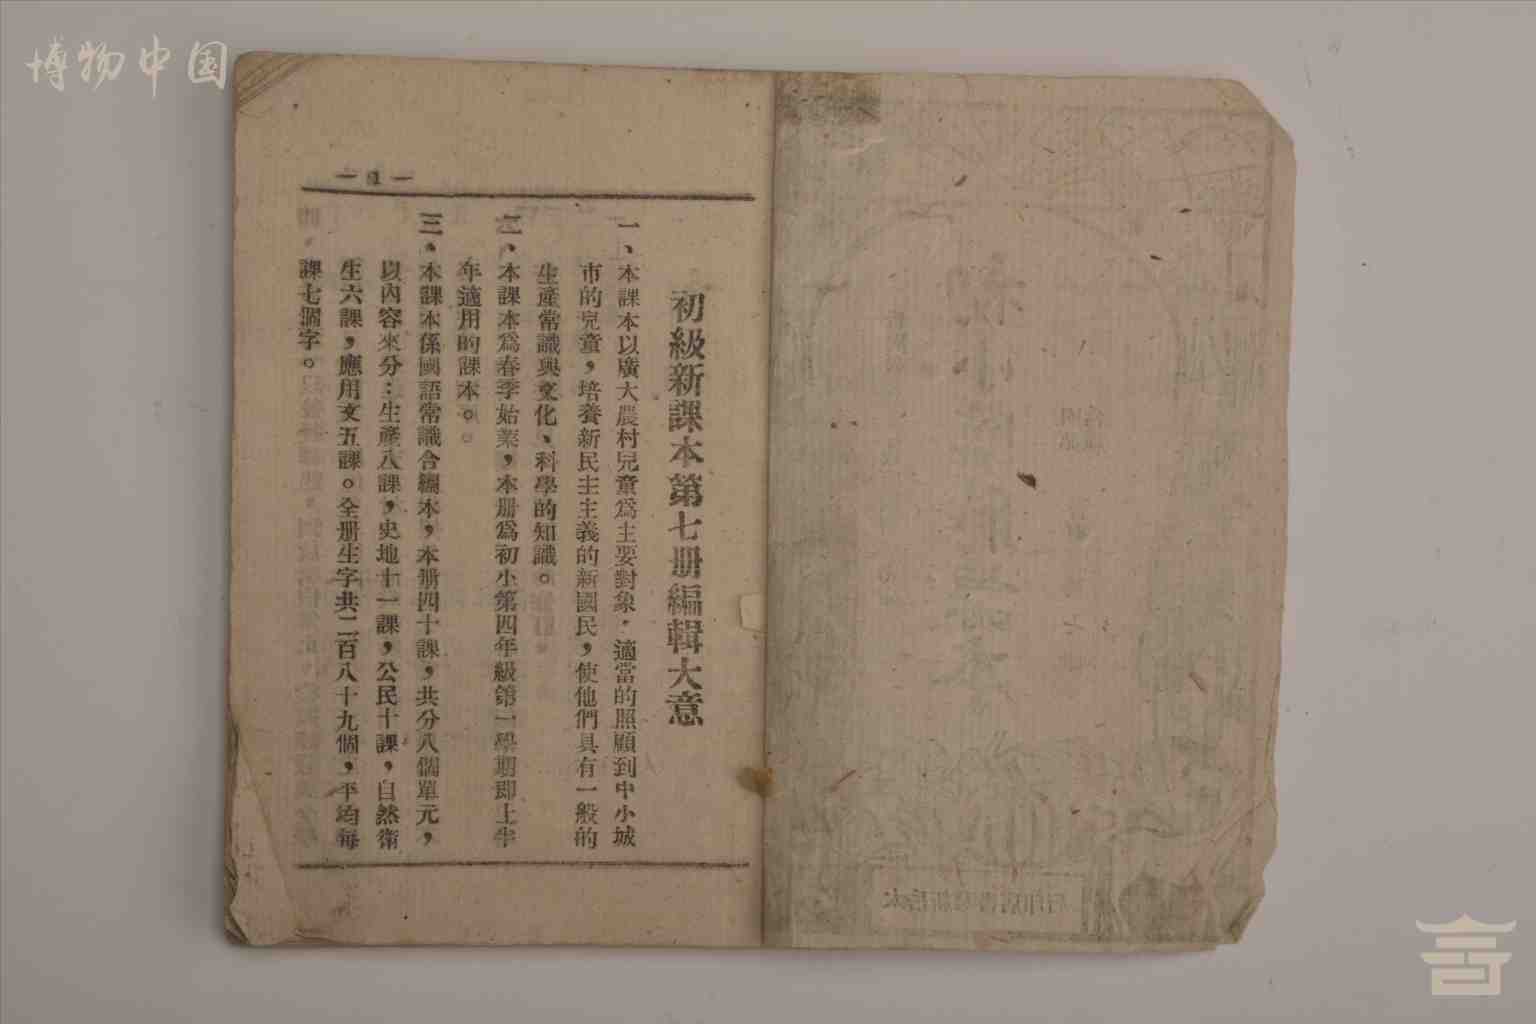 博物中国
初級新課本第七册編輯大意
一、本課本以廣大農村兒童爲主要對象．適當的照顧到中小城
市的兒童，培養新民主主義的新國民，使他們具有一般的
生產常識與文化、科學的知識。
二、本課本爲春季始業，本册爲初小第四年級第一學期即上半
年適用的課本。
三，本課本係國語常識合編本，本册四十課，共分八個單元，
以內容來分：生產八課，史地十一課，公民十課，自然衛
生六課，應用文五課。全册生字共二百八十九個，平均每
課七個字。
—1—